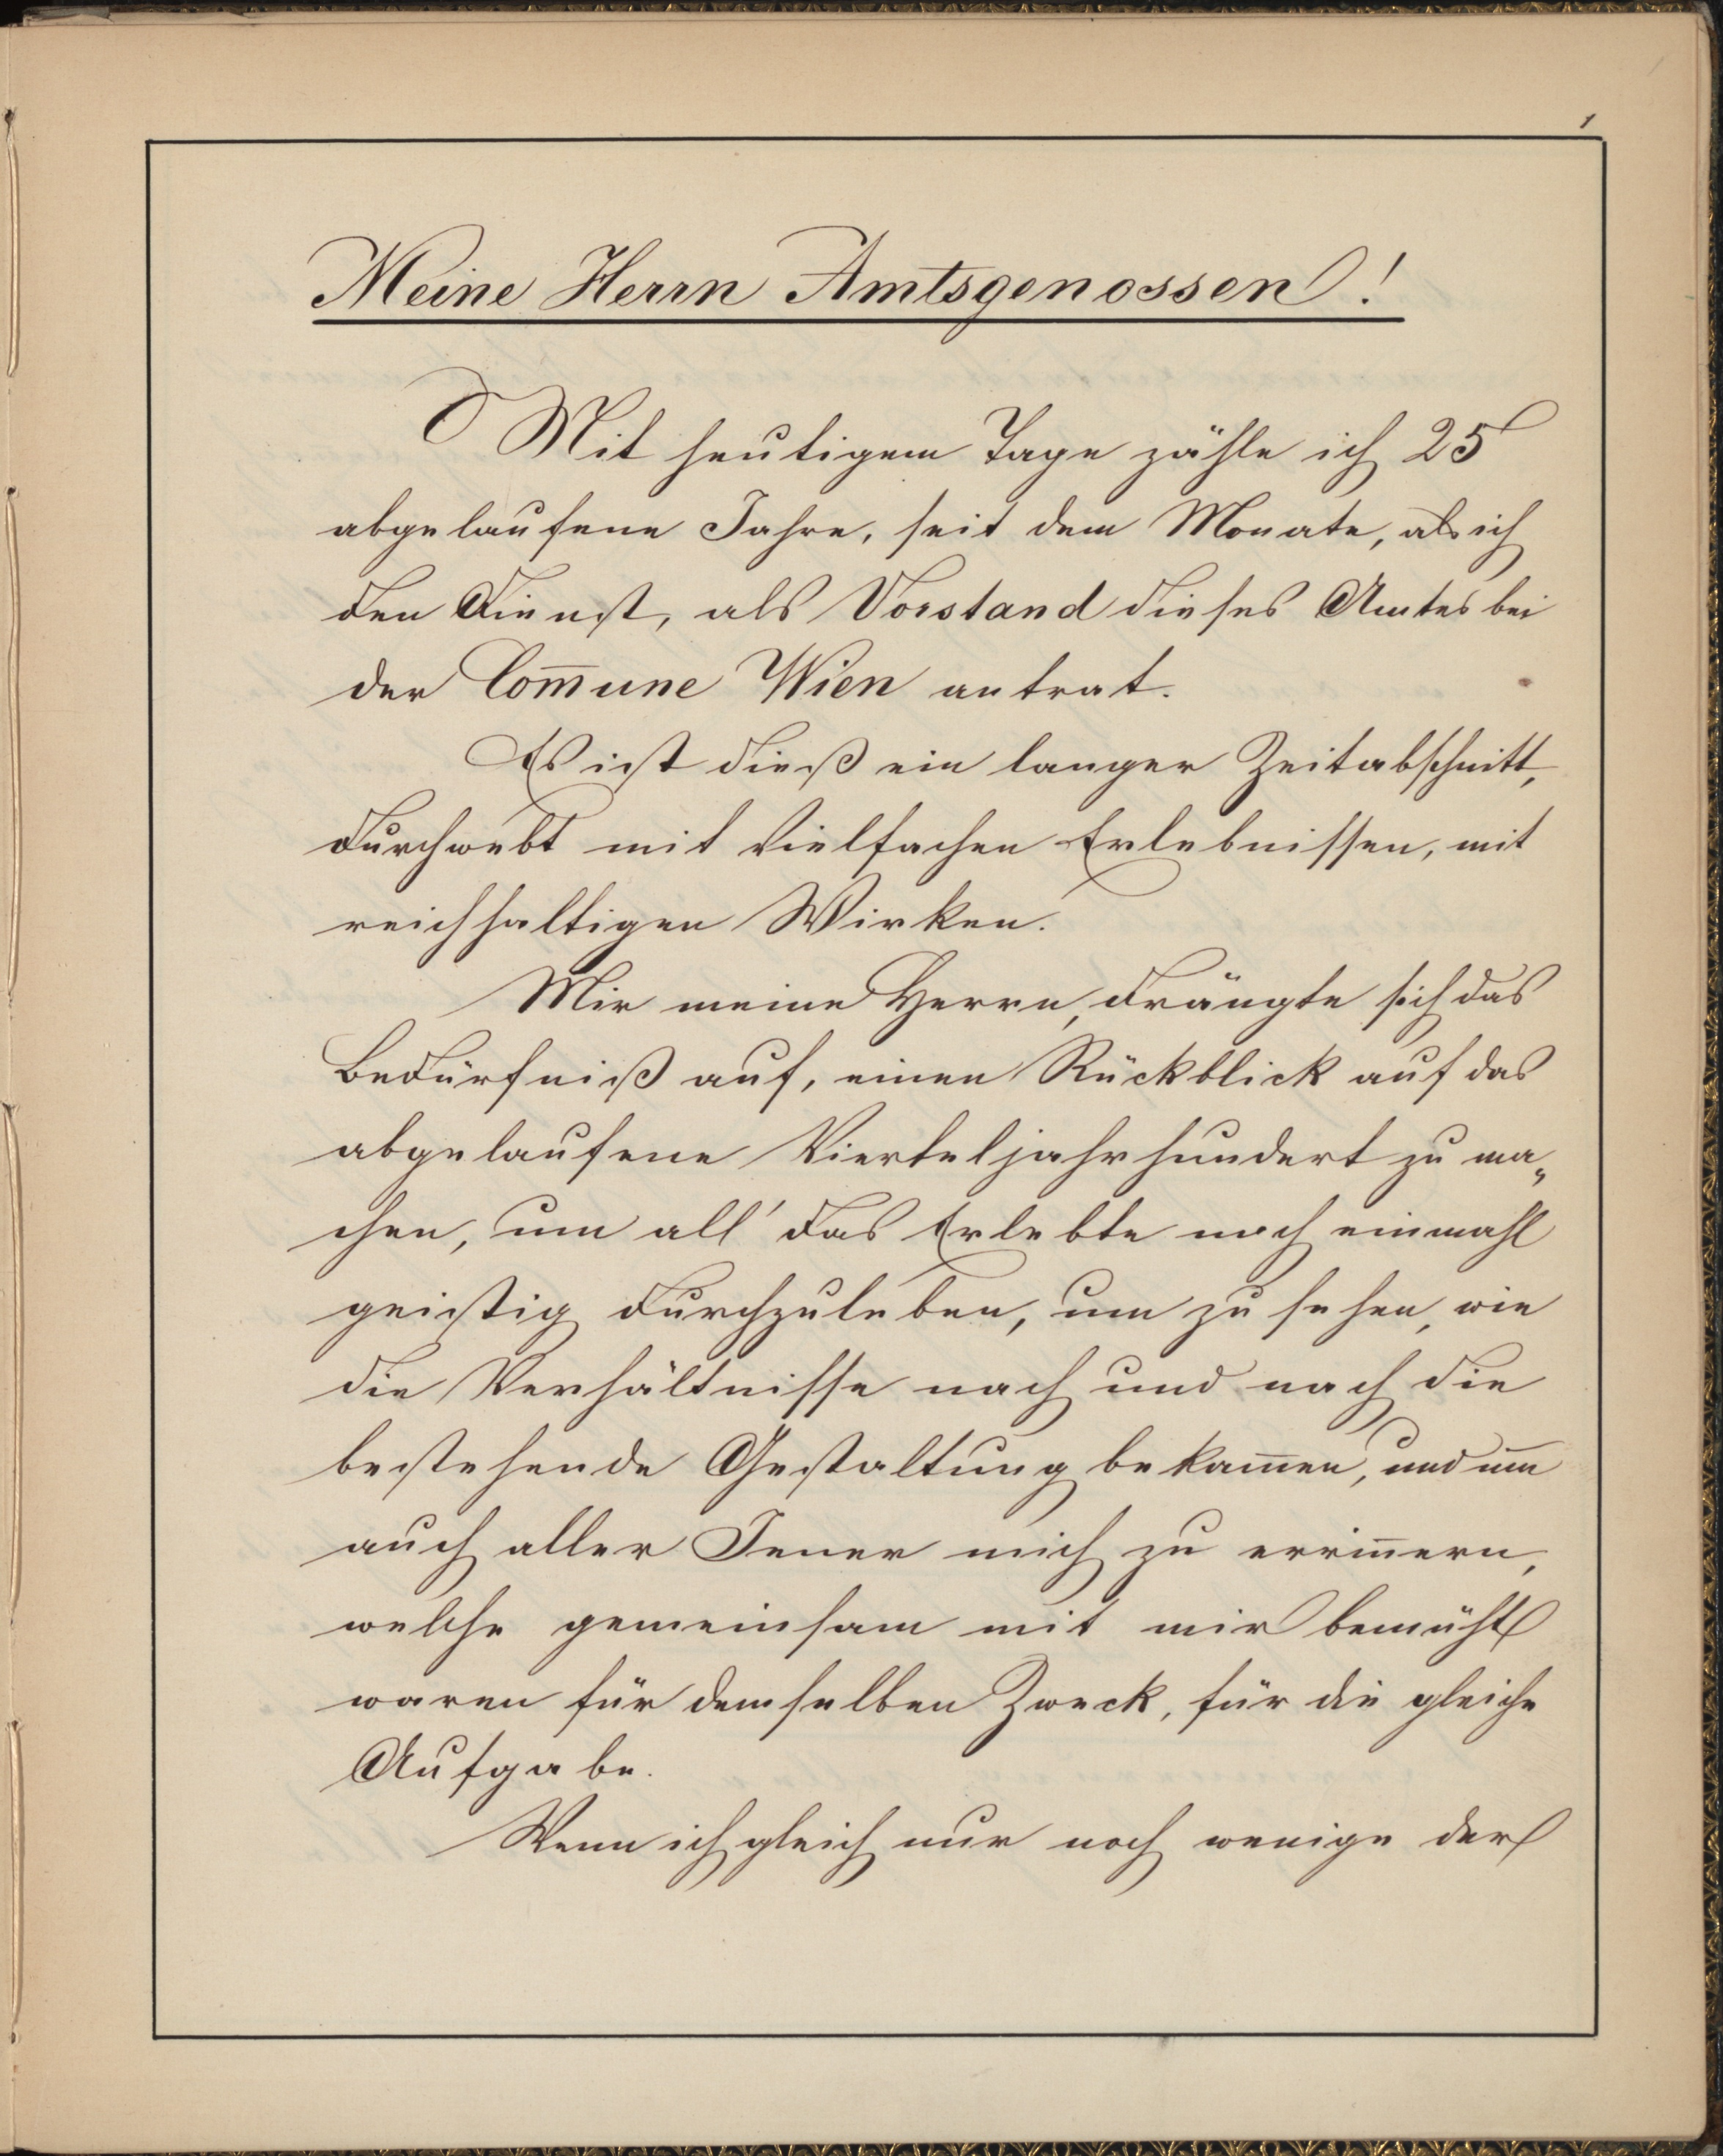 1
Meine Herrn Amtsgenossen!
Mit heutigem Tage zähle ich 25
abgelaufene Jahre, seit dem Monate, als ich
den Dienst, als Vorstand dieses Amtes bei
der Com̅une Wien antrat.
Es ist dieß ein langer Zeitabschnitt,
durchwebt mit vielfachen Erlebnissen, mit
reichhaltigen Wirken.
Mir meine Herrn, drängte sich das
Bedürfniß auf, einen Rückblick auf das
abgelaufene Vierteljahrhundert zu ma„
chen, um all' das Erlebte noch einmahl
geistig durchzuleben, um zu sehen, wie
die Verhältnisse nach und nach die
bestehende Gestaltung bekam̅en, und um
auch aller Jener mich zu errin̅ern,
welche gemeinsam mit mir bemüht
waren für demselben Zweck, für die gleiche
Aufgabe.
Wenn ich gleich nur noch wenige der